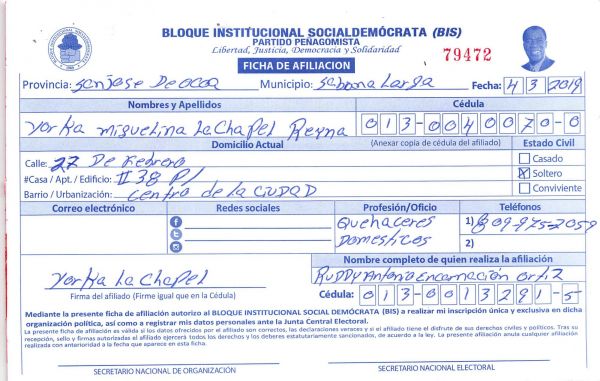 BLOQUE INSTITUCIONAL SOCIALDEMÓCRATA (BIS)
PARTIDO PEÑAGOMISTA
Libertad, Justicia, Democracia y Solidaridad
79472
FICHA DE AFILIACION
Provincia: San Jose De Ocoa Municipio: Sabana Larga Fecha: 4 3 2019
Nombres y Apellidos Cédula
Yorka Miguelina LaChapel Reyna 013-0040070-0
Domicilio Actual (Anexar copia de cédula del afiliado) Estado Civil
Calle: 27 De Febrero Casado
#Casa / Apt. / Edificio: # 38 P/ X Soltero
Barrio / Urbanización: Centro de la CIUDAD Conviviente
Correo electrónico Redes sociales Profesión/Oficio Teléfonos
Quehaceres 1) 809-975-2059
Domesticos 2)
Nombre completo de quien realiza la afiliación
Yorka La Chapel Ruddy Antonio Encarnación Ortiz
Firma del afiliado (Firme igual que en la Cédula) Cédula: 013-0013291-5
Mediante la presente ficha de afiliación autorizo al BLOQUE INSTITUCIONAL SOCIAL DEMÓCRATA (BIS) a realizar mi inscripción única y exclusiva en dicha
organización política, así como a registrar mis datos personales ante la Junta Central Electoral.
La presente ficha de afiliación es válida si los datos ofrecidos por el afiliado son correctos, las declaraciones veraces y si el afiliado tiene el disfrute de sus derechos civiles y políticos. Tras su
recepción, sello y firmas autorizadas el afiliado ejercerá todos los derechos y los deberes estatutariamente sancionados, de acuerdo a la ley. La presente afiliación anula cualquier afiliación
realizada con anterioridad a la fecha que aparece en esta ficha.
SECRETARIO NACIONAL DE ORGANIZACIÓN SECRETARIO NACIONAL ELECTORAL